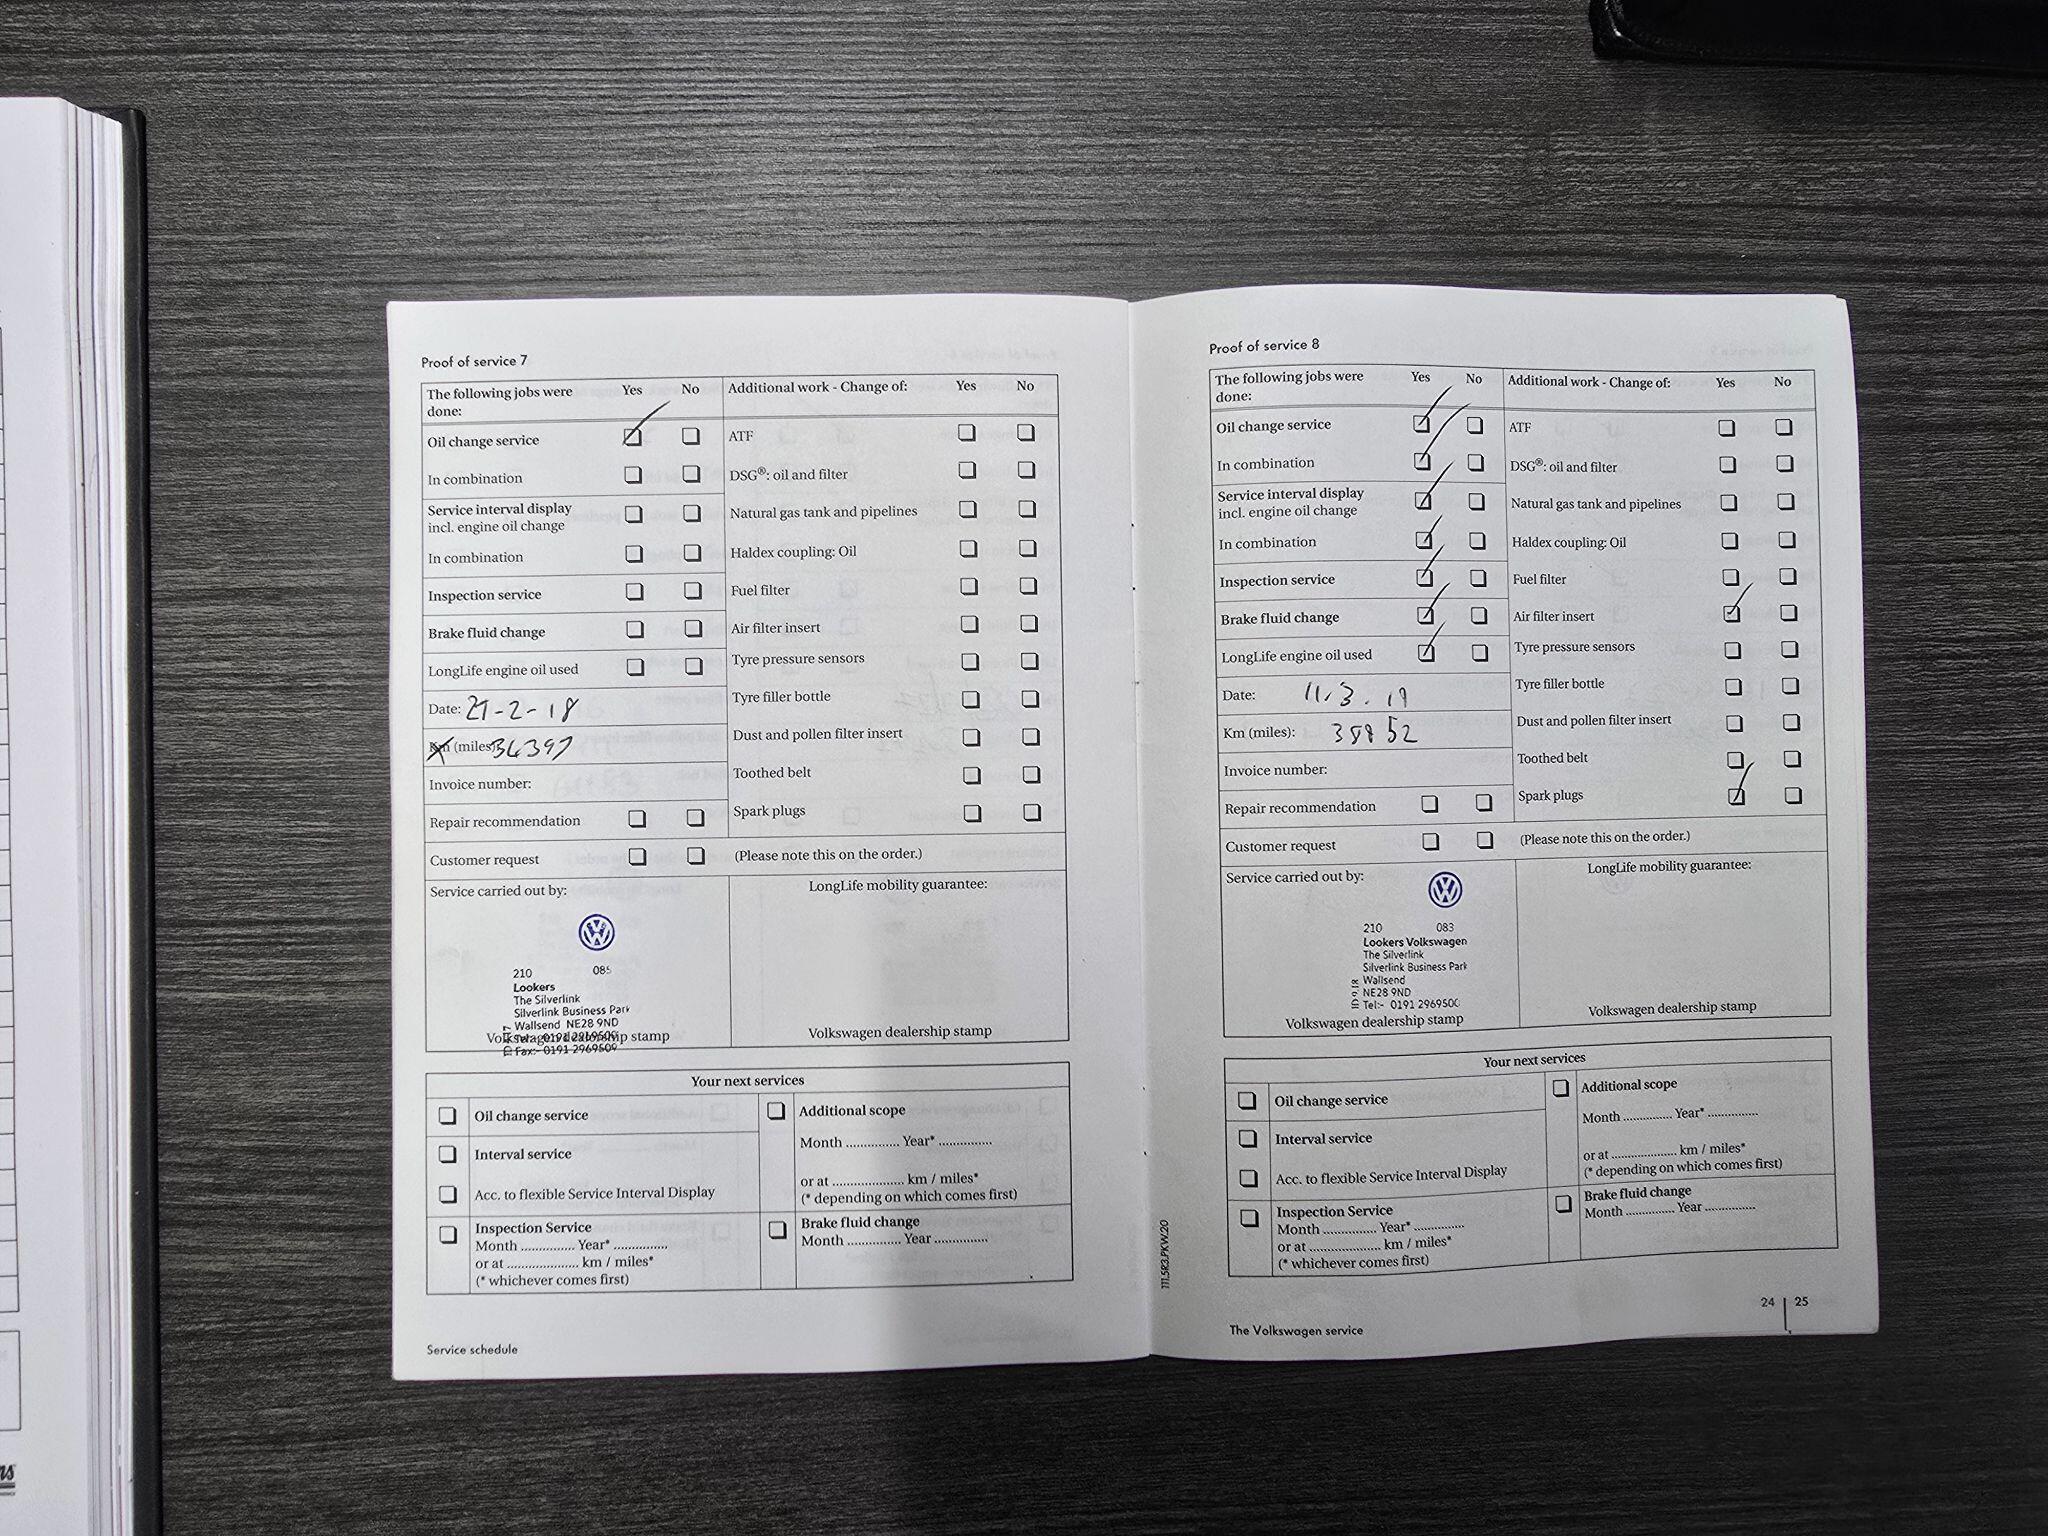 Proof of service 7
The following jobs were done: Yes No
Oil change service
In combination
Service interval display
incl. engine oil change
In combination
Inspection service
Brake fluid change
LongLife engine oil used
Date: 21-2-18
Km (miles): 34397
Invoice number:
Repair recommendation
Customer request
Additional work - Change of: Yes No
ATF
DSG®: oil and filter
Natural gas tank and pipelines
Haldex coupling: Oil
Fuel filter
Air filter insert
Tyre pressure sensors
Tyre filler bottle
Dust and pollen filter insert
Toothed belt
Spark plugs
(Please note this on the order.)
Service carried out by:
210 085
Lookers
The Silverlink
Silverlink Business Park
Wallsend NE28 9ND
Tel:- 0191 2969500
Fax:- 0191 2969509
Volkswagen dealership stamp
LongLife mobility guarantee:
Volkswagen dealership stamp
Your next services
Oil change service
Interval service
Acc. to flexible Service Interval Display
Inspection Service
Month ............... Year* ...............
or at .................... km / miles*
(* whichever comes first)
Additional scope
Month ............... Year* ...............
or at .................... km / miles*
(* depending on which comes first)
Brake fluid change
Month ............... Year ...............
Service schedule
Proof of service 8
The following jobs were done: Yes No
Oil change service
In combination
Service interval display
incl. engine oil change
In combination
Inspection service
Brake fluid change
LongLife engine oil used
Date: 11.3.19
Km (miles): 38852
Invoice number:
Repair recommendation
Customer request
Additional work - Change of: Yes No
ATF
DSG®: oil and filter
Natural gas tank and pipelines
Haldex coupling: Oil
Fuel filter
Air filter insert
Tyre pressure sensors
Tyre filler bottle
Dust and pollen filter insert
Toothed belt
Spark plugs
(Please note this on the order.)
Service carried out by:
210 083
Lookers Volkswagen
The Silverlink
Silverlink Business Park
Wallsend
NE28 9ND
Tel:- 0191 2969500
ID 9.18
Volkswagen dealership stamp
LongLife mobility guarantee:
Volkswagen dealership stamp
Your next services
Oil change service
Interval service
Acc. to flexible Service Interval Display
Inspection Service
Month ............... Year* ...............
or at .................... km / miles*
(* whichever comes first)
Additional scope
Month ............... Year* ...............
or at .................... km / miles*
(* depending on which comes first)
Brake fluid change
Month ............... Year ...............
111.5R3.PKW.20
The Volkswagen service
24 | 25